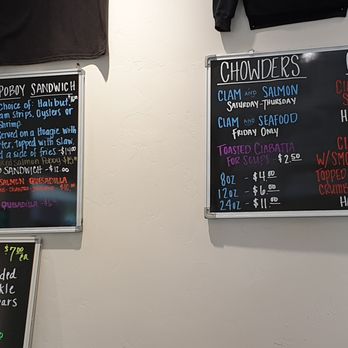 POBOY SANDWICH
Choice of: Halibut,
am strips, Oysters or
Shrimp
erved on a Hoagie with
topped with slaw,
d a side of fries
SANDWICH
SALMON QUESADILLA
QUESADILLA
$7.00
EA
ded
kle
ars
CHOWDERS
CLAM AND SALMON
SATURDAY-THURSDAY
CLAM AND SEAFOOD
FRIDAY ONLY
TOASTED CIABATTA
FOR SOUPS - $2.50
8oz - $4.00
12oz - $6.00
24oz - $11.00
C
W/SMO
TOPPED
CRUMB